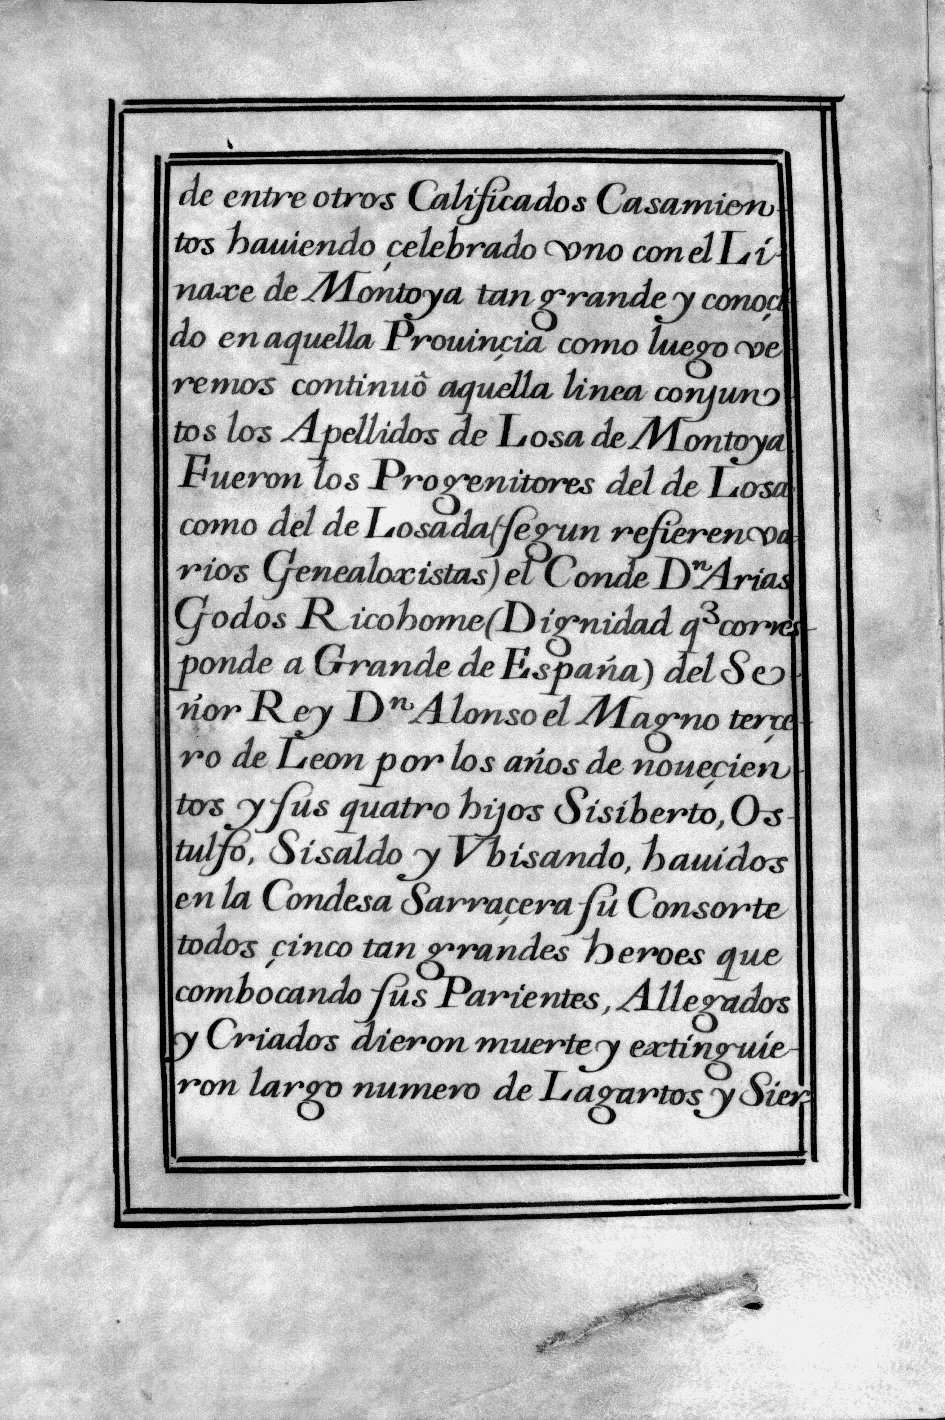 de entre otros Calificados Casamien-
tos hauiendo çelebrado vno con el Lí-
naxe de Montoya tan grande y conoçi
do en aquella Prouinçia como luego ve-
remos continuô aquella linea conjun-
tos los Apellidos de Losa de Montoya
Fueron los Progenitores del de Losa
como del de Losada (ſegun refieren va-
rios Genealoxistas) el Conde Dⁿ Arias
Godos Ricohome (Dignidad q³ corres-
ponde a Grande de España) del Se-
ñor Rey Dⁿ Alonso el Magno terçe-
ro de Leon por los años de noueçien-
tos y ſus quatro hijos Sisiberto, Os-
tulfo, Sisaldo y Vbisando, hauidos
en la Condesa Sarraçera ſu Consorte
todos çinco tan grandes heroes que
combocando ſus Parientes, Allegados
y Criados dieron muerte y extinguie-
ron largo numero de Lagartos y Sier